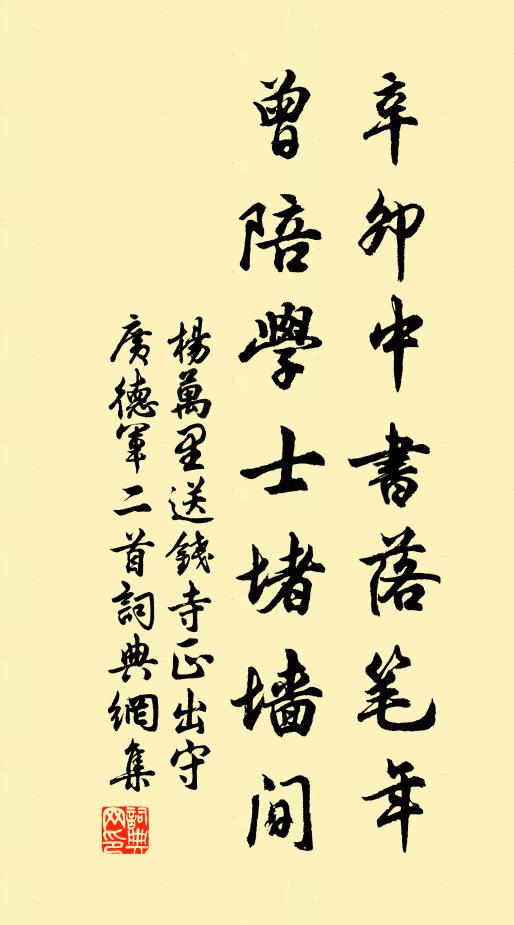 辛卯中書落笔年
曾陪學士堵墙間
楊萬里送錢寺正出守
廣德軍二首詞典網集
詞典
网印